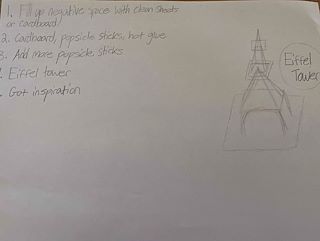 1. Fill up negative space with clean sheets
or cardboard
2. Cardboard, popsicle sticks, hot glue
3. Add more popsicle sticks
. Eiffel tower
. Got inspiration
Eiffel
Tower